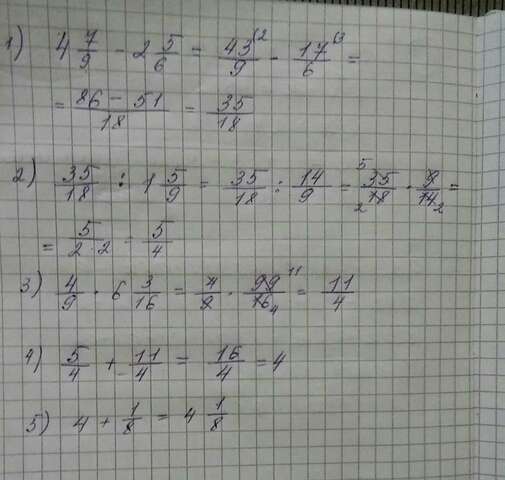 1) 4 7/9 - 2 5/6 = 43/9 (2 - 17/6 (3 =
= 86 - 51/18 = 35/18
2) 35/18 : 1 5/9 = 35/18 : 14/9 = 5 35/18 2 · 9/14 2 =
= 5/2·2 = 5/4
3) 4/9 · 6 3/16 = 4/9 · 99 11/16 4 = 11/4
4) 5/4 + 11/4 = 16/4 = 4
5) 4 + 1/8 = 4 1/8